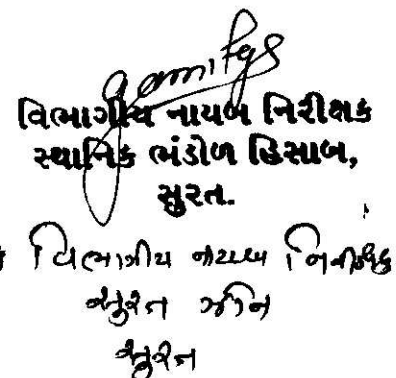 વિભાગીય નાયબ નિરીક્ષક
સ્થાનિક ભંડોળ હિસાબ,
સુરત.
વિભાગીય નાયબ નિરીક્ષક
સુરત ઝોન
સુરત